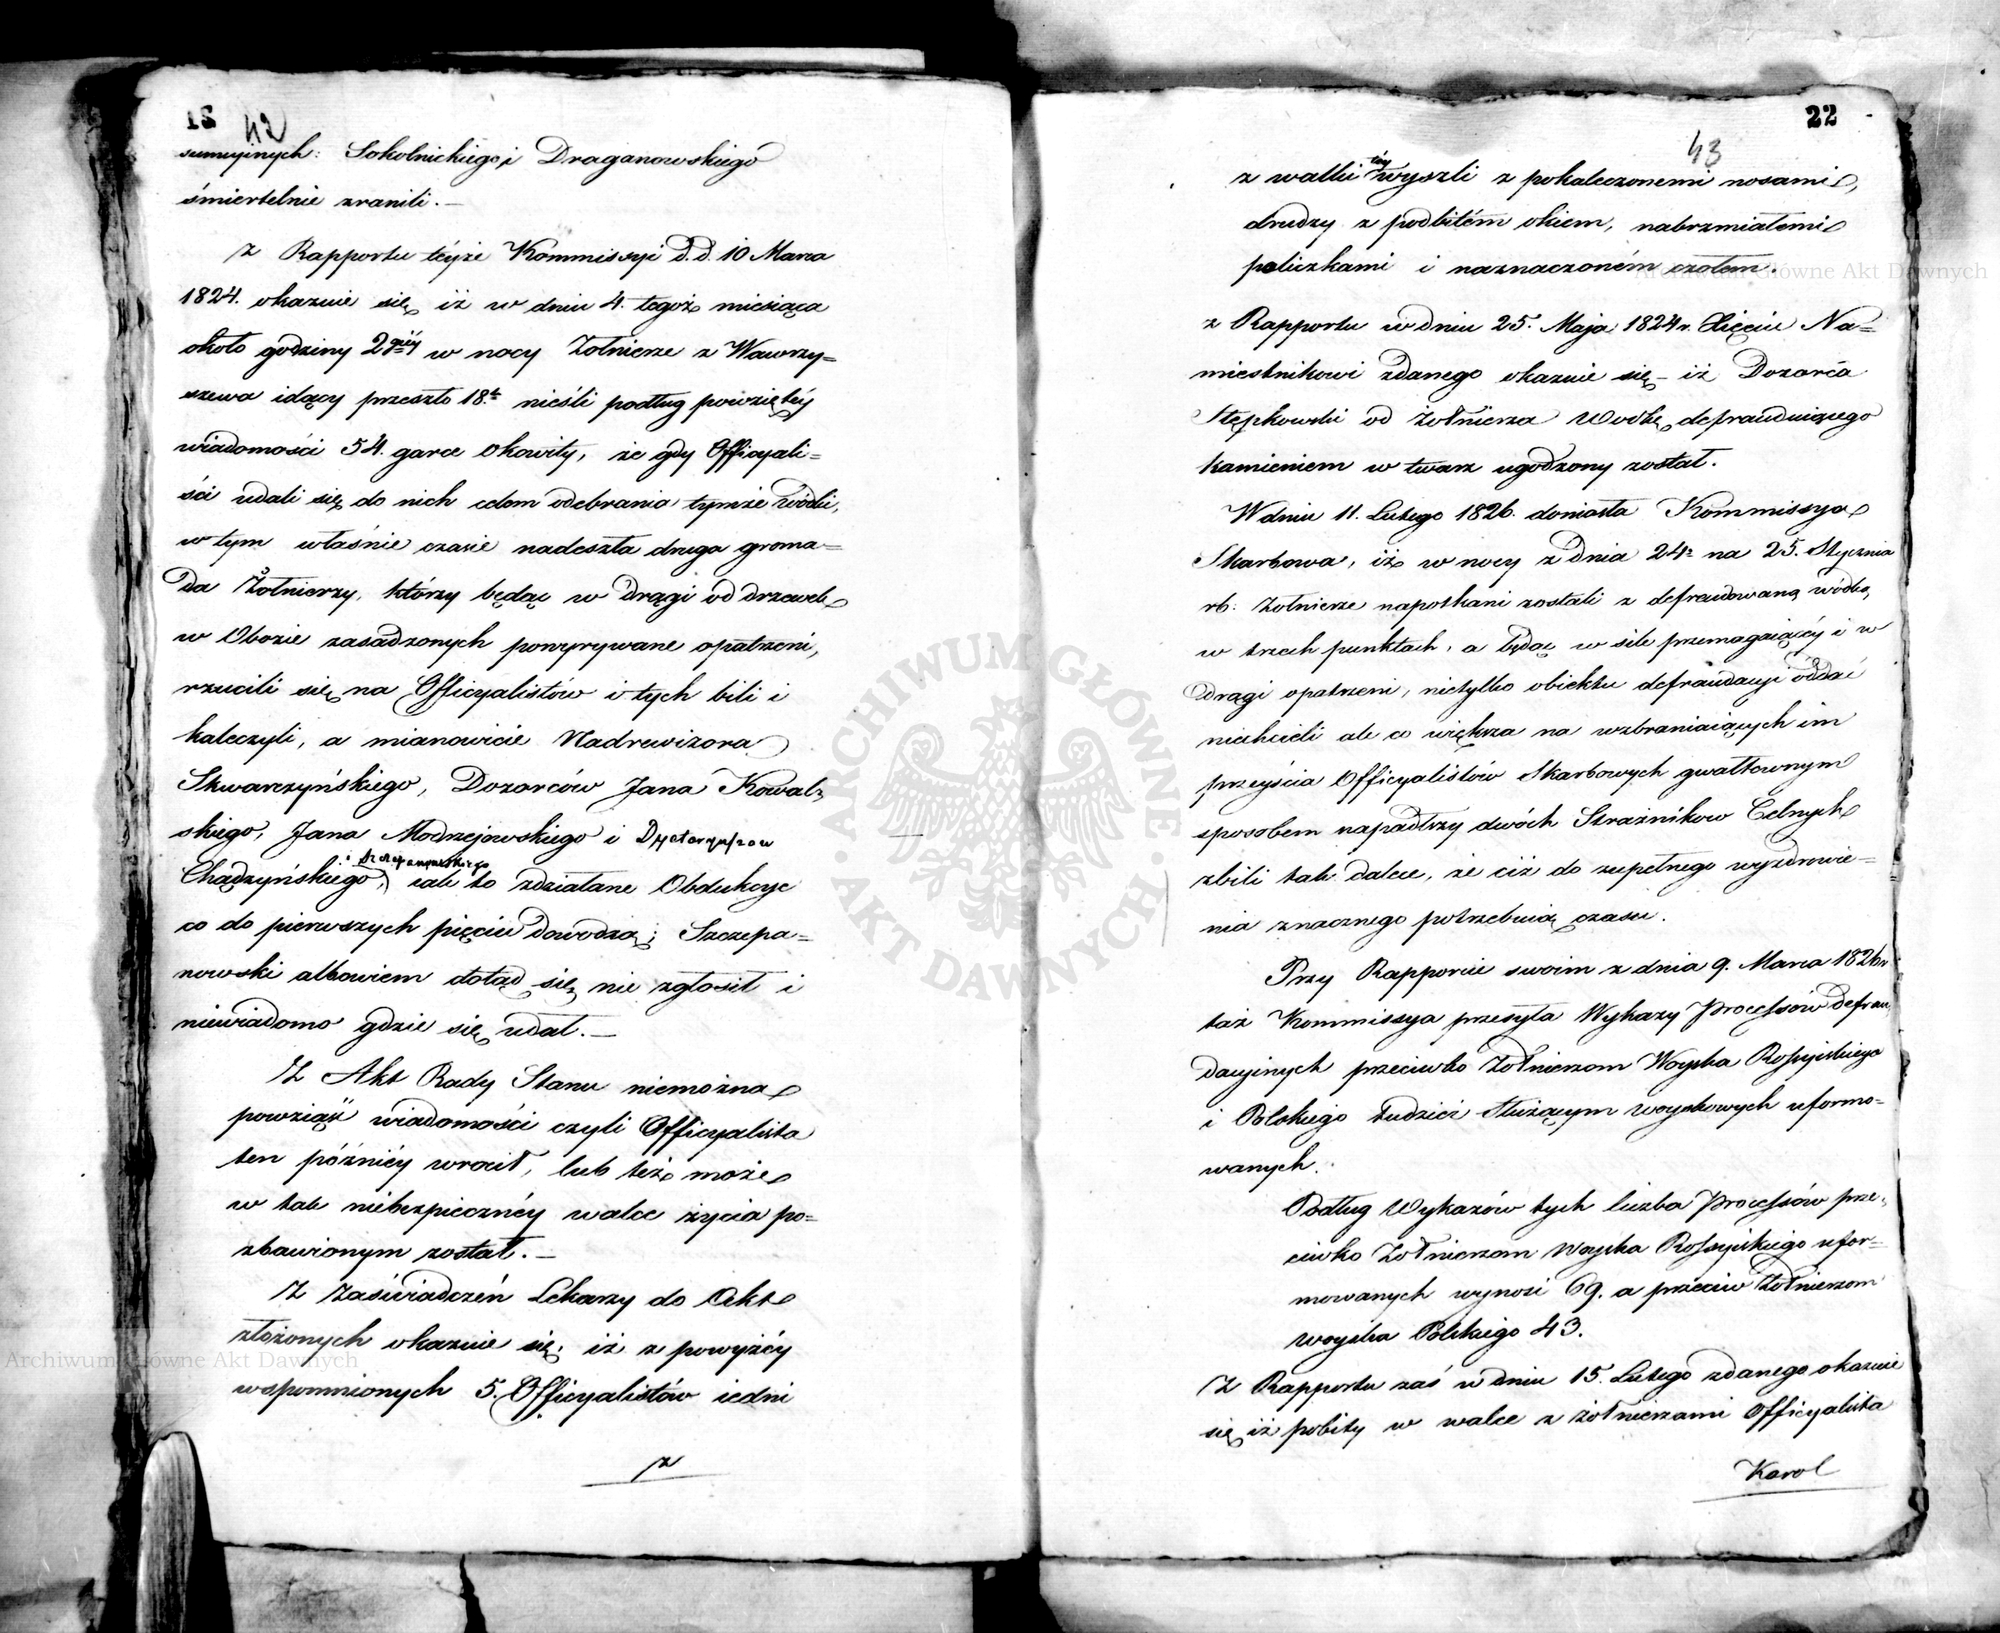 42
sumcyinych: Sokolnickiego i Draganowskiego
śmiertelnie zranili. —
Z Rapportu teyże Kommissyi d. d. 10 Marca
1824. okazuie się, iż w dniu 4. tegoż miesiąca
około godziny 2giéy w nocy Żołnierze z Wawrzy=
szewa idący przeszło 18.tu nieśli podług powziętéy
wiadomości 54. garce Okowity, że gdy Officyali=
ści udali się do nich celem odebrania tymże wódki,
w tym właśnie czasie nadeszła druga groma=
da Żołnierzy, którzy będąc w drągi od drzewek
w Obozie zasadzonych powyrywane opatrzeni,
rzucili się na Officyalistów i tych bili i
kaleczyli, a mianowicie Nadrewizora
Skwarczyńskiego, Dozorców Jana Kowal=
skiego, Jana Modrzejowskiego i
i Szczepanowskiego
Chądzyńskiego, iak to zdziałane Obdukcye
co do pierwszych pięciu dowodzą; Szczepa=
nowski albowiem dotąd się nie zgłosił i
niewiadomo gdzie się udał. —
Z Akt Rady Stanu niemożna
powziąść wiadomości czyli Officyalista
ten późniéy wrócił, lub też może
w tak niebezpiecznéy walce życia po=
zbawionym został. —
Z Zaświadczeń Lekarzy do Akt
złożonych okazuie się, iż z powyżéy
wspomnionych 5. Officyalistów iedni
z
22
43
z walki téy wyszli z pokaleczonemi nosami,
drudzy z podbitém okiem, nabrzmiałemi
policzkami i naznaczoném czołem.
z Rapportu w dniu 25. Maja 1824 r. Xięciu Na=
miestnikowi zdanego okazuie się — iż Dozorca
Stępkowski od żołnierza Wodkę defrauduiącego
kamieniem w twarz ugodzony został.
W dniu 11. Lutego 1826. doniosła Kommissya
Skarbowa, iż w nocy z dnia 24. na 25. Stycznia
rb: Żołnierze napotkani zostali z defraudowaną wódką
w trzech punktach, a będąc w sile przemagaiącéy i w
drągi opatrzeni, nietylko obiektu defraudacyi oddać
niechcieli ale co większa na wzbraniaiących im
przeyścia Officyalistów Skarbowych gwałtownym
sposobem napadłszy dwóch Strażników Celnych
zbili tak dalece, że ciż do zupełnego wyzdrowie=
nia znacznego potrzebuią czasu.
Przy Rapporcie swoim z dnia 9. Marca 1826 r
taż Kommissya przesyła Wykazy Processów defrau
dacyinych przeciwko Żołnierzom Woyska Rossyiskiego
i Polskiego tudzież Służącym woyskowych uformo=
wanych.
Podług Wykazów tych liczba Processów prze=
ciwko Żołnierzom Woyska Rossyiskiego ufor=
mowanych wynosi 69. a przeciw Żołnierzom
woyska Polskiego 43.
Z Rapportu zaś w dniu 15. Lutego zdanego okazuie
się iż pobity w walce z żołnierzami Officyalista
Karol
ARCHIWUM GŁÓWNE AKT DAWNYCH
Archiwum Główne Akt Dawnych
Archiwum Główne Akt Dawnych